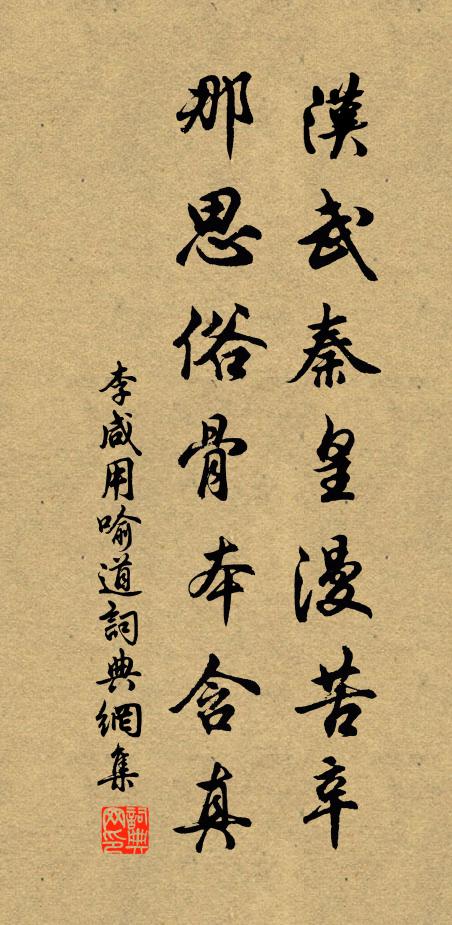 漢武秦皇漫苦辛
那思俗骨本含真
李咸用喻道詞典網集
詞典網印